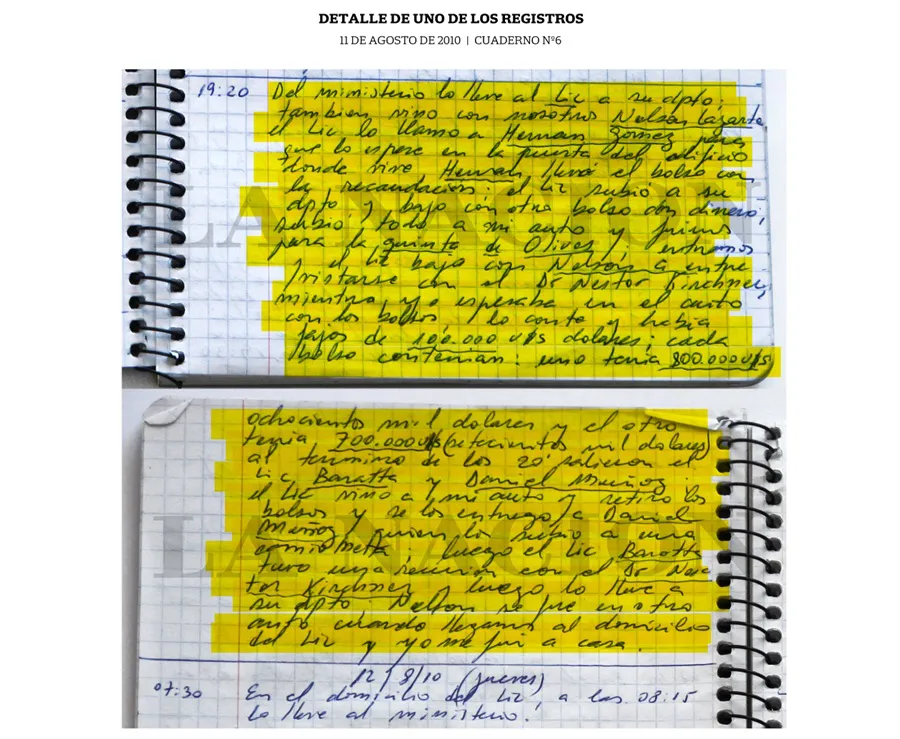 DETALLE DE UNO DE LOS REGISTROS
11 DE AGOSTO DE 2010 | CUADERNO Nº6
19:20 Del ministerio lo lleve al Lic a su dpto;
tambien vino con nosotros Nelson Lazarte
el Lic lo llamo a Hernan Gomez para
que lo espere en la puerta del edificio
donde vive Hernan, llevó el bolso con
la recaudacion. el Lic subió a su
dpto y bajo con otro bolso con dinero,
subio todo a mi auto y fuimos
para la quinta de Olivos; entramos
y el Lic bajo con Nelson a entre
vistarse con el Dr Nestor Kirchner,
mientras yo esperaba en el auto
con los bolsos, lo conte y habia
fajos de 100.000 u$s dolares; cada
bolso contenian: uno tenia 800.000 u$s
LA NACION
ochocientos mil dolares y el otro
tenia 700.000 u$s (setecientos mil dolares)
al termino de los 20' salieron el
Lic Baratta y Daniel Muñoz.
el Lic vino a mi auto y retiro los
bolsos y se los entrego a Daniel
Muñoz, quien los subio a una
camionetta; luego el Lic Baratta
tuvo una reunion con el Dr Nes
tor Kirchner y luego lo lleve a
su dpto. Nelson se fue en otro
auto cuando llegamos al domicilio
del Lic y yo me fui a casa.
LA NACION
12/8/10 (jueves)
07:30 En el domicilio del Lic, a las 08:15
lo lleve al ministerio.